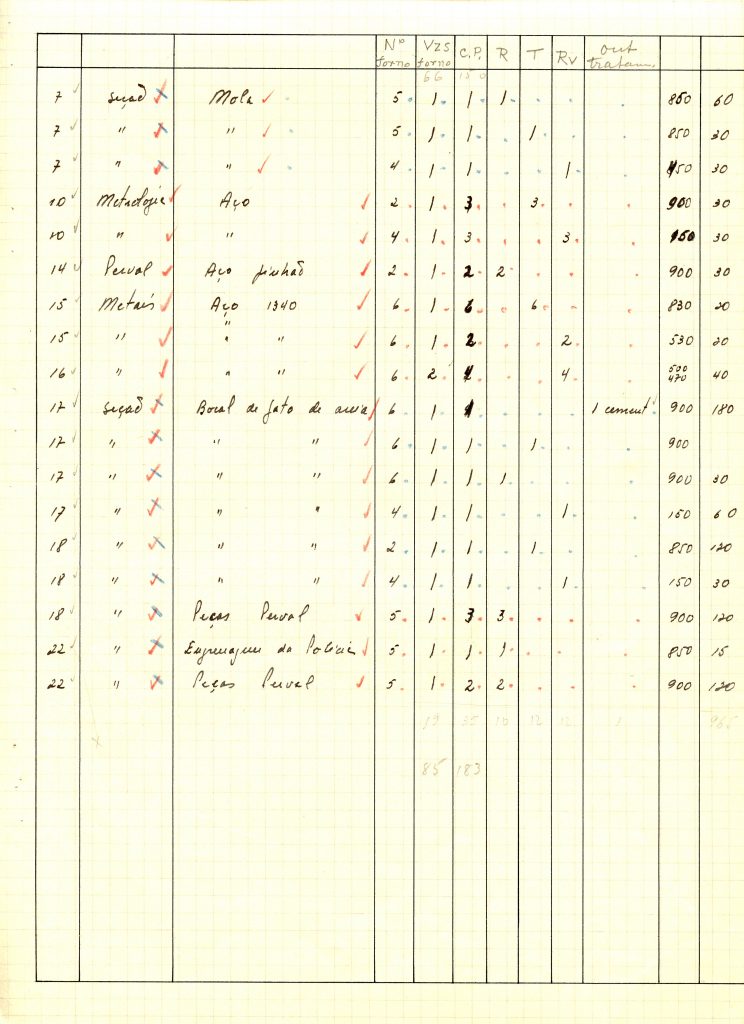 Nº forno Vzs forno C.P. R T Rv out tratam.
66 150
7 seção Mola 5 1 1 1 850 60
7 " " 5 1 1 1 850 30
7 " " 4 1 1 1 150 30
10 Metrologia Aço 2 1 3 3 900 30
10 " " 4 1 3 3 150 30
14 Perval Aço pinhão 2 1 2 2 900 30
15 Metais Aço 1340 6 1 6 6 830 20
15 " " " 6 1 2 2 530 20
16 " " " 6 2 4 4 500 470 40
17 seção Bocal de jato de areia 6 1 1 1 cement. 900 180
17 " " " 6 1 1 1 900
17 " " " 6 1 1 1 900 30
17 " " " 4 1 1 1 150 60
18 " " " 2 1 1 1 850 120
18 " " " 4 1 1 1 150 30
18 " Peças Perval 5 1 3 3 900 120
22 " Engrenagem da Polícia 5 1 1 1 850 15
22 " Peças Perval 5 1 2 2 900 120
19 35 10 12 12 1 965
x
85 183